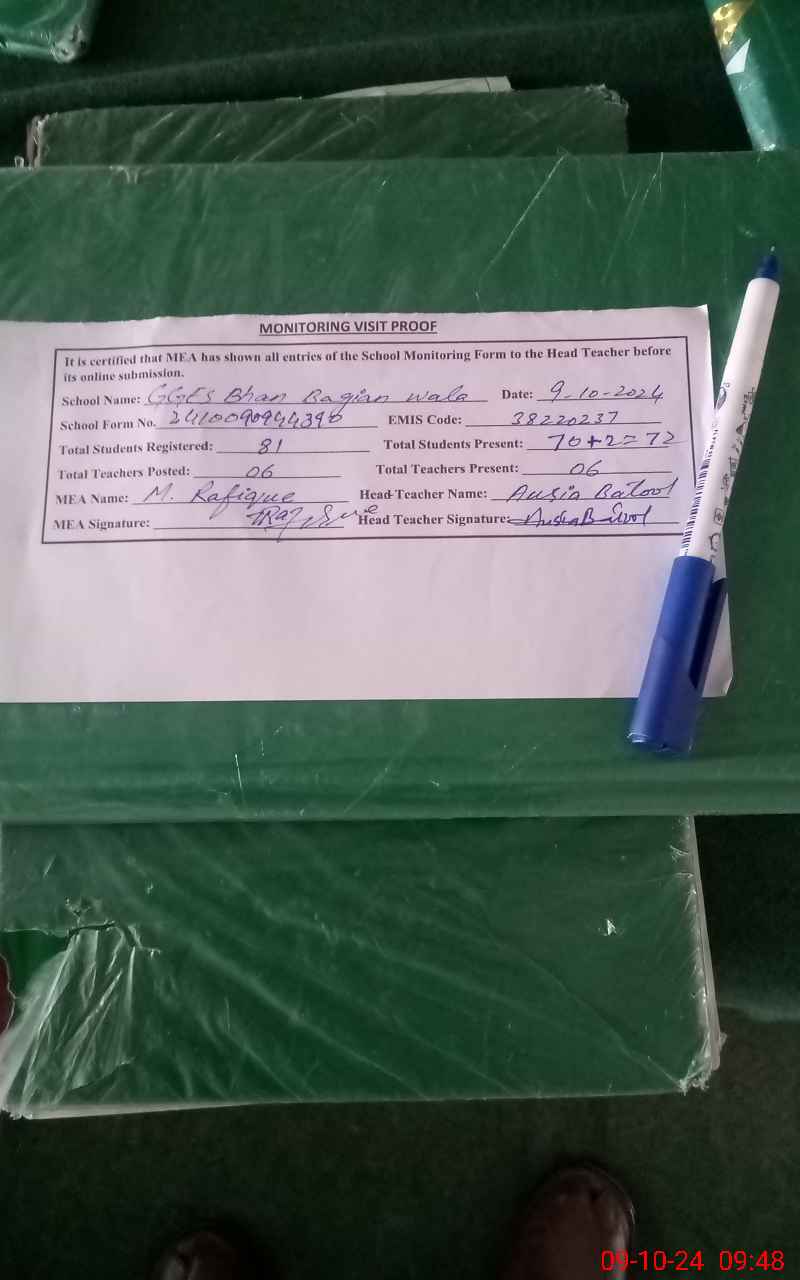 MONITORING VISIT PROOF
It is certified that MEA has shown all entries of the School Monitoring Form to the Head Teacher before
its online submission.
School Name: GGES Bhan Bagian Wala Date: 9-10-2024
School Form No. 2410090944390 EMIS Code: 38220237
Total Students Registered: 81 Total Students Present: 70+2=72
Total Teachers Posted: 06 Total Teachers Present: 06
MEA Name: M. Rafique Head Teacher Name: Ausia Batool
MEA Signature: Head Teacher Signature: Ausia Batool
09-10-24 09:48